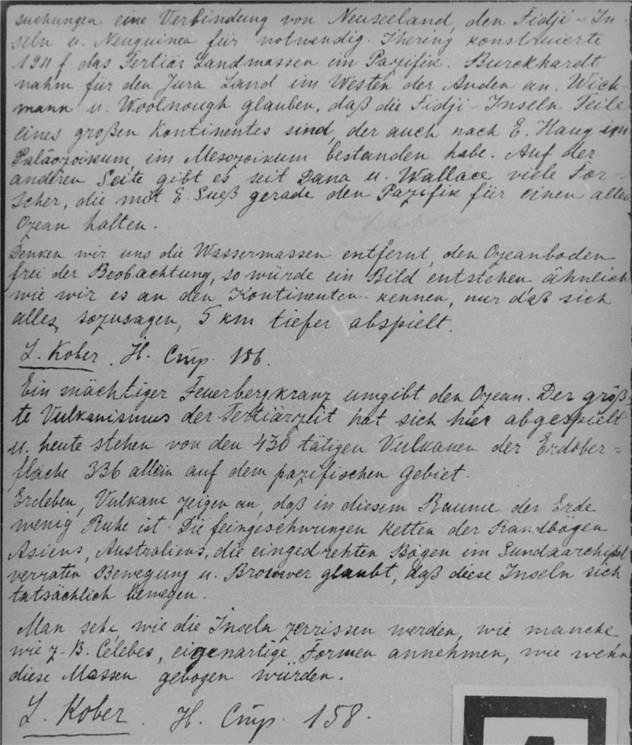 suchungen eine Verbindung von Neuseeland, den Fidji-In-
seln u. Neuguinea für notwendig. Ihering konstruierte
1911 f. das Tertiär Landmassen im Pazifik. Burckhardt
nahm für den Jura Land im Westen der Anden an. Wich-
mann u. Woolnough glauben, daß die Fidji-Inseln Teile
eines großen Kontinentes sind, der auch nach E. Haug im
Paläozoikum, im Mesozoikum bestanden habe. Auf der
anderen Seite gibt es seit Dana u. Wallace viele For-
scher, die mit E. Sueß gerade den Pazifik für einen alten
Ozean halten.
Denken wir uns die Wassermassen entfernt, den Ozeanboden
frei der Beobachtung, so würde ein Bild entstehen ähnlich
wie wir es an den Kontinenten kennen, nur daß sich
alles, sozusagen, 5 km tiefer abspielt.
L. Kober. H. Cmp. 156.
Ein mächtiger Feuerbergkranz umgibt den Ozean. Der größ-
te Vulkanismus der Tertiärzeit hat sich hier abgespielt
u. heute stehen von den 430 tätigen Vulkanen der Erdober=
fläche 336 allein auf dem pazifischen Gebiet.
Erdeben, Vulkane zeigen an, daß in diesem Raume der Erde
wenig Ruhe ist. Die feingeschwungen Ketten der Randbögen
Asiens, Australiens, die eingedrehten Bögen im Sundaarchipel
verraten Bewegung u. Brouwer glaubt, daß diese Inseln sich
tatsächlich bewegen.
Man sehe wie die Inseln zerrissen werden, wie manche
wie z. B. Celebes, eigenartige Formen annehmen, wie wenn
diese Massen gebogen würden.
L. Kober. H. Cmp. 158.